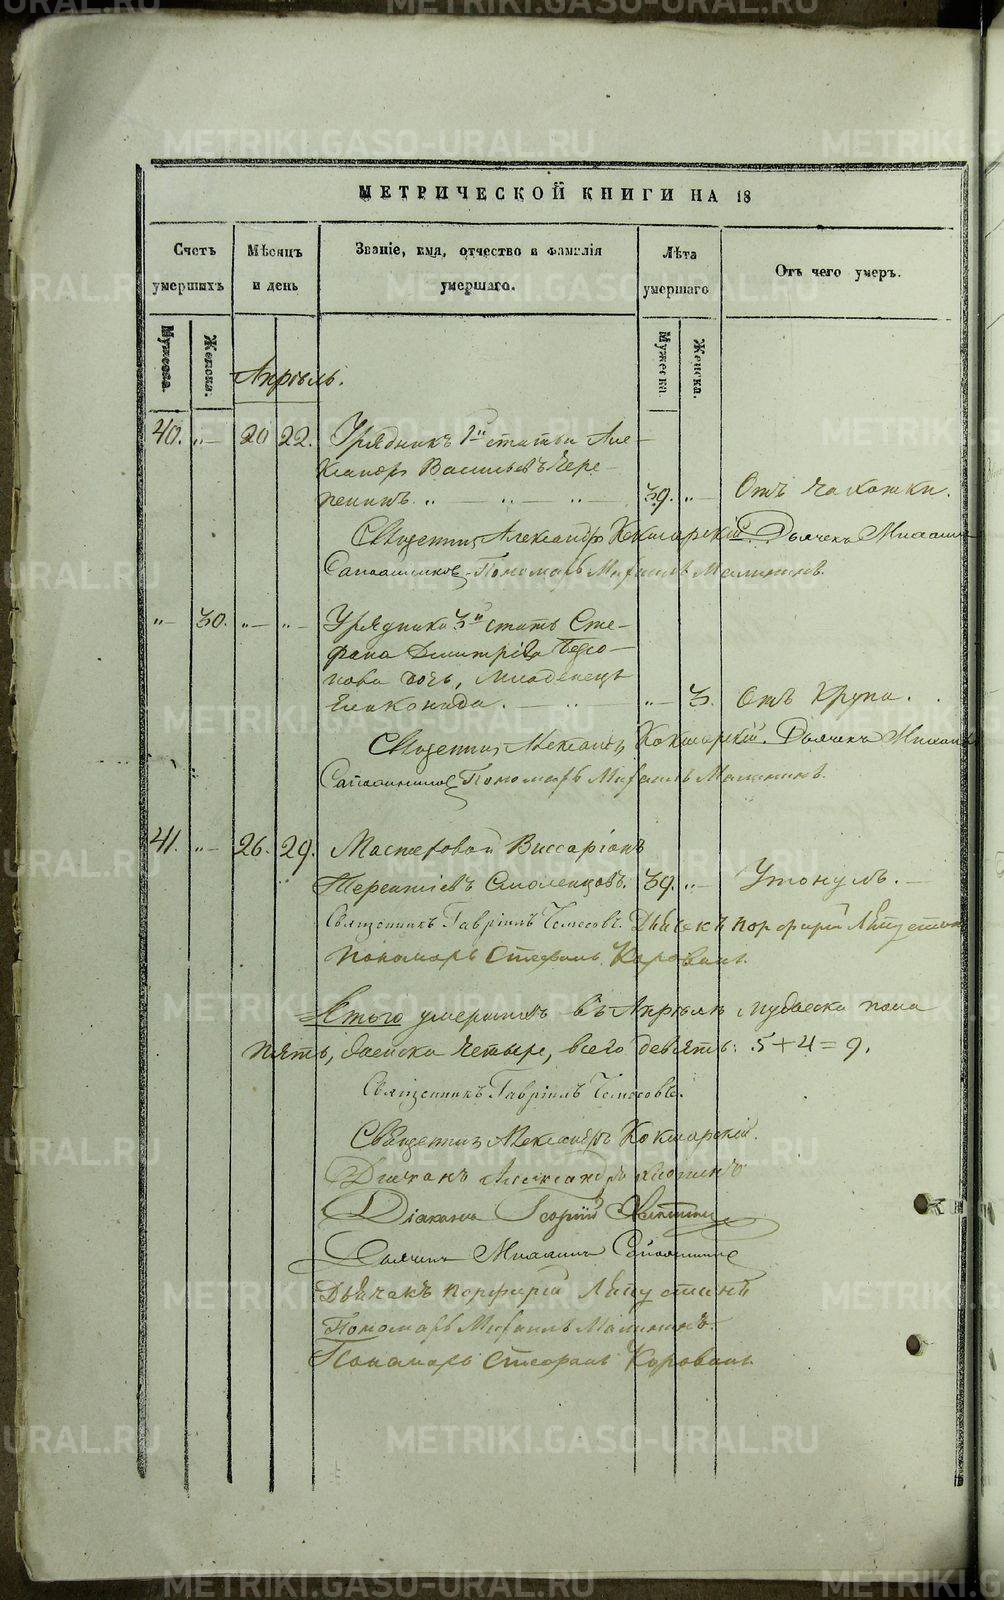 METRIKI.GASO-URAL.RU
МЕТРИЧЕСКОЙ КНИГИ НА 18
Счетъ умершихъ
Мѣсяцъ и день
Званіе, имя, отчество и фамилія умершаго.
Лѣта умершаго
Отъ чего умеръ.
Мужеска.
Женска.
Мужеска.
Женска.
Апрѣль.
40. "— 20 22. Урядникъ 1й статьи Але-
ксандръ Васильевъ Чере-
пенинъ 39. "— Отъ чахотки.
Священникъ Александръ Кокшарскій. Дьячекъ Михаилъ
Пономарь Михаилъ Малининъ.
"— 30. "— "— Урядника 3й статьи Сте-
фана Димитріева
дочь, младенецъ
"— 3. Отъ крупа.
Священникъ Александръ Кокшарскій. Дьячекъ Михаилъ
Пономарь Михаилъ Малининъ.
41. "— 26. 29. Мастеровой Виссаріонъ
Терентіевъ Смоленцовъ. 39. "— Утонулъ.
Священникъ Гавріилъ Дьячекъ Порфирій
Пономарь Стефанъ
Итого умершихъ въ Апрѣлѣ мужеска пола
пять, женска четыре, всего девять: 5+4=9.
Священникъ Гавріилъ
Священникъ Александръ Кокшарскій.
Александръ
Діаконъ Георгій
Дьячекъ Михаилъ
Дьячекъ Порфирій
Пономарь Михаилъ Малининъ.
Пономарь Стефанъ